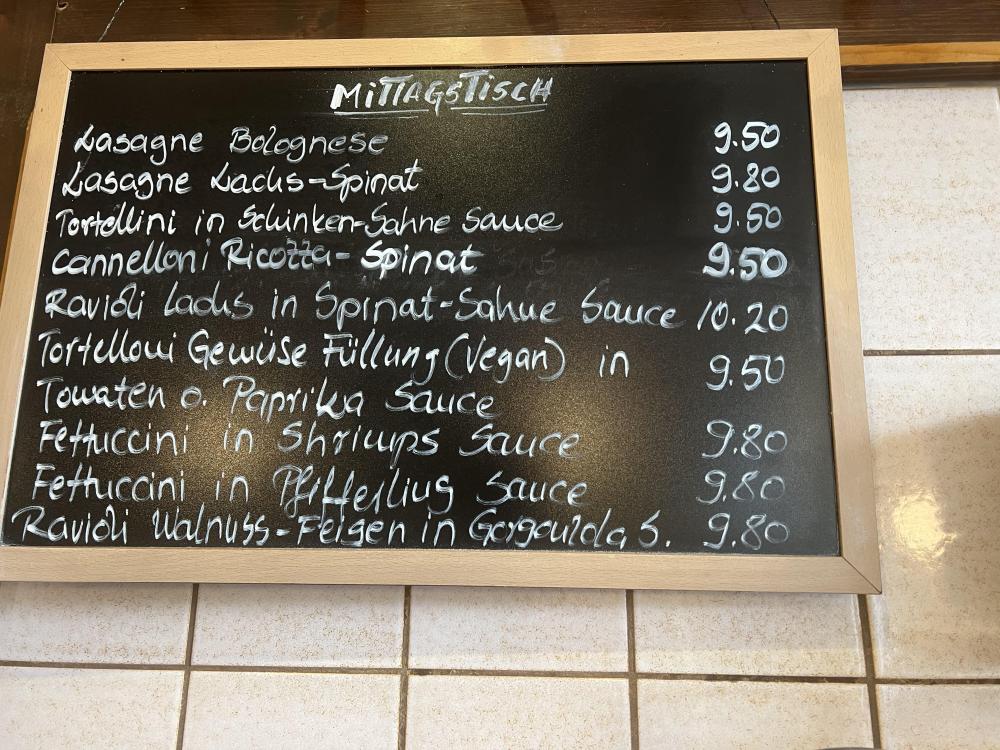 MITTAGSTISCH
Lasagne Bolognese 9.50
Lasagne Lachs-Spinat 9.80
Tortellini in Schinken-Sahne Sauce 9.50
Cannelloni Ricotta-Spinat 9.50
Ravioli Lachs in Spinat-Sahne Sauce 10.20
Tortelloni Gewüse Füllung (Vegan) in 9.50
Tomaten o. Paprika Sauce
Fettuccini in Shrimps Sauce 9.80
Fettuccini in Pfifferling Sauce 9.80
Ravioli Walnuss-Feigen in Gorgonzola S. 9.80